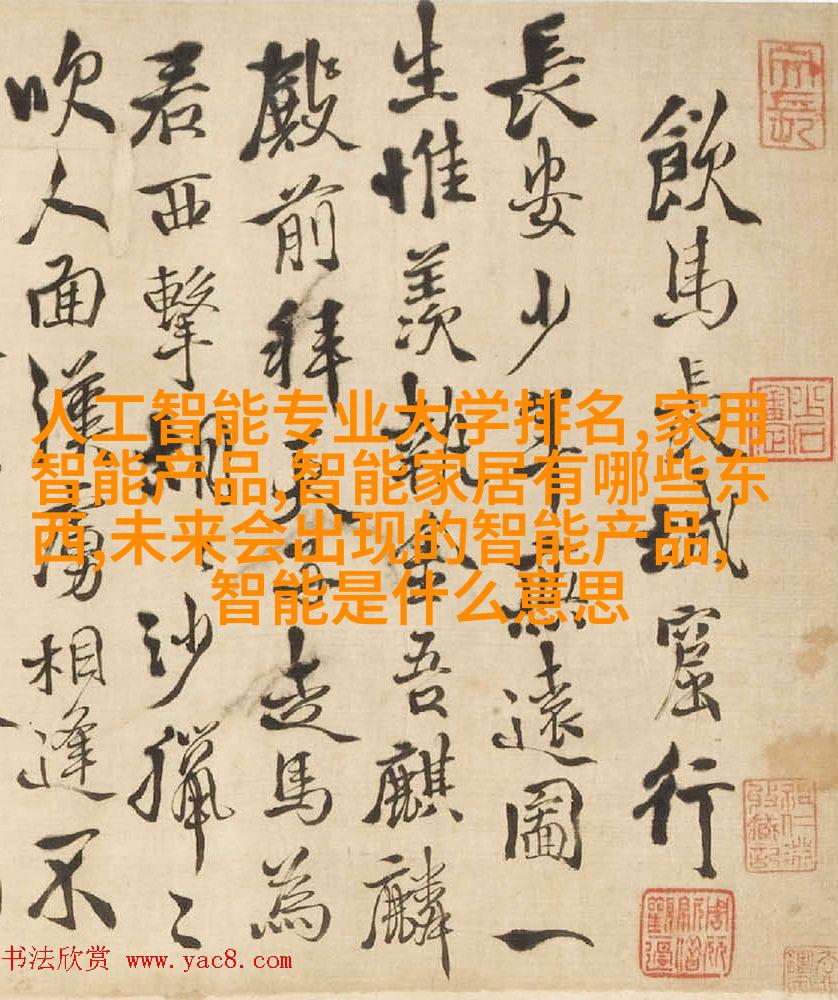 飲馬長城窟行
長安少年無遠圖一
生惟羨執金吾麒麟
殿前拜天子走馬為
君西擊胡々沙獵々
吹人面漢虜相逢不
人工智能专业大学排名,家用
智能产品,智能家居有哪些东
西,未来会出现的智能产品,
智能是什么意思
书法欣赏 www.yac8.com